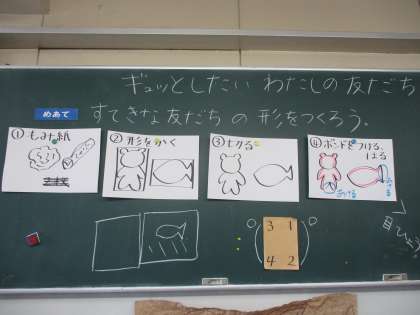 ギュッとしたい わたしの友だち
めあて
すてきな友だちの形をつくろう。
① もみ紙
② 形をかく
③ 切る
④ ボンドをつける、
はる
あける
3 1
4 2